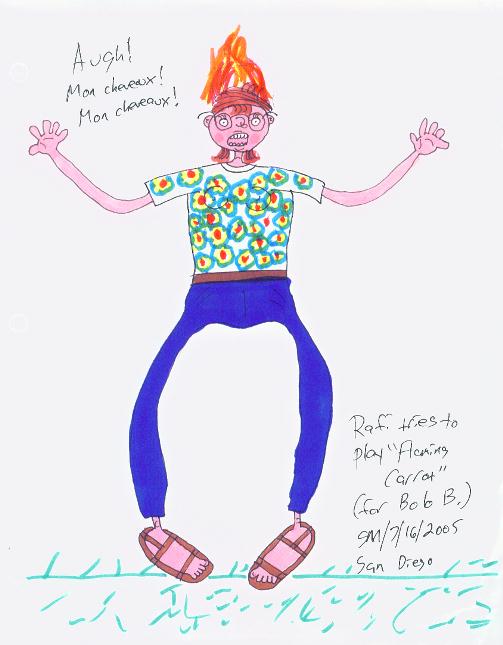 Augh!
Mon cheveux!
Mon cheveaux!
Rafi tries to
play "Flaming
Carrot"
(for Bob B.)
SM/7/16/2005
San Diego